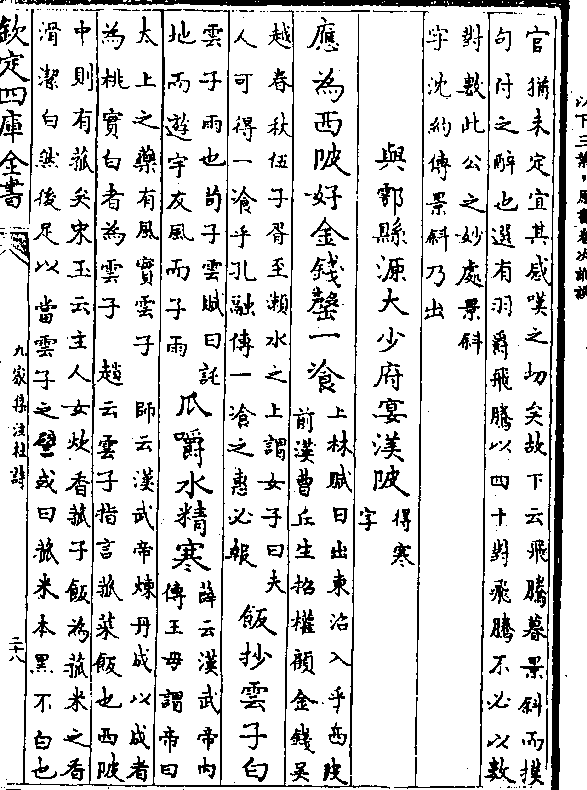 官猶未定宜其感嘆之切矣故下云飛騰暮景斜而摸
句付之醉也選有羽爵飛騰以四十對飛騰不必以數
對數此公之妙處景斜
字沈約傳景斜乃出
與鄠縣源大少府宴渼陂得寒字
應為西陂好金錢罄一飡上林賦曰出東沿入乎西陂
前漢曹丘生招權顧金錢吳
越春秋伍子胥至瀬水之上謂女子曰夫
人可得一飡乎孔融傳一飡之惠必報飯抄雲子白
雲子雨也荀子雲賦曰託
地而遊宇友風而子雨瓜嚼水精寒薛云漢武帝内
傳王母謂帝曰
太上之藥有風實雲子師云漢武帝煉丹成以成者
為桃實白者為雲子趙云雲子指言菰菜飯也西陂
中則有菰矣宋玉云主人女炊香菰子飯為菰米之香
滑潔白然後足以當雲子之譬或曰菰米本黑不白也
欽定四庫全書
九家集注杜詩
二十八